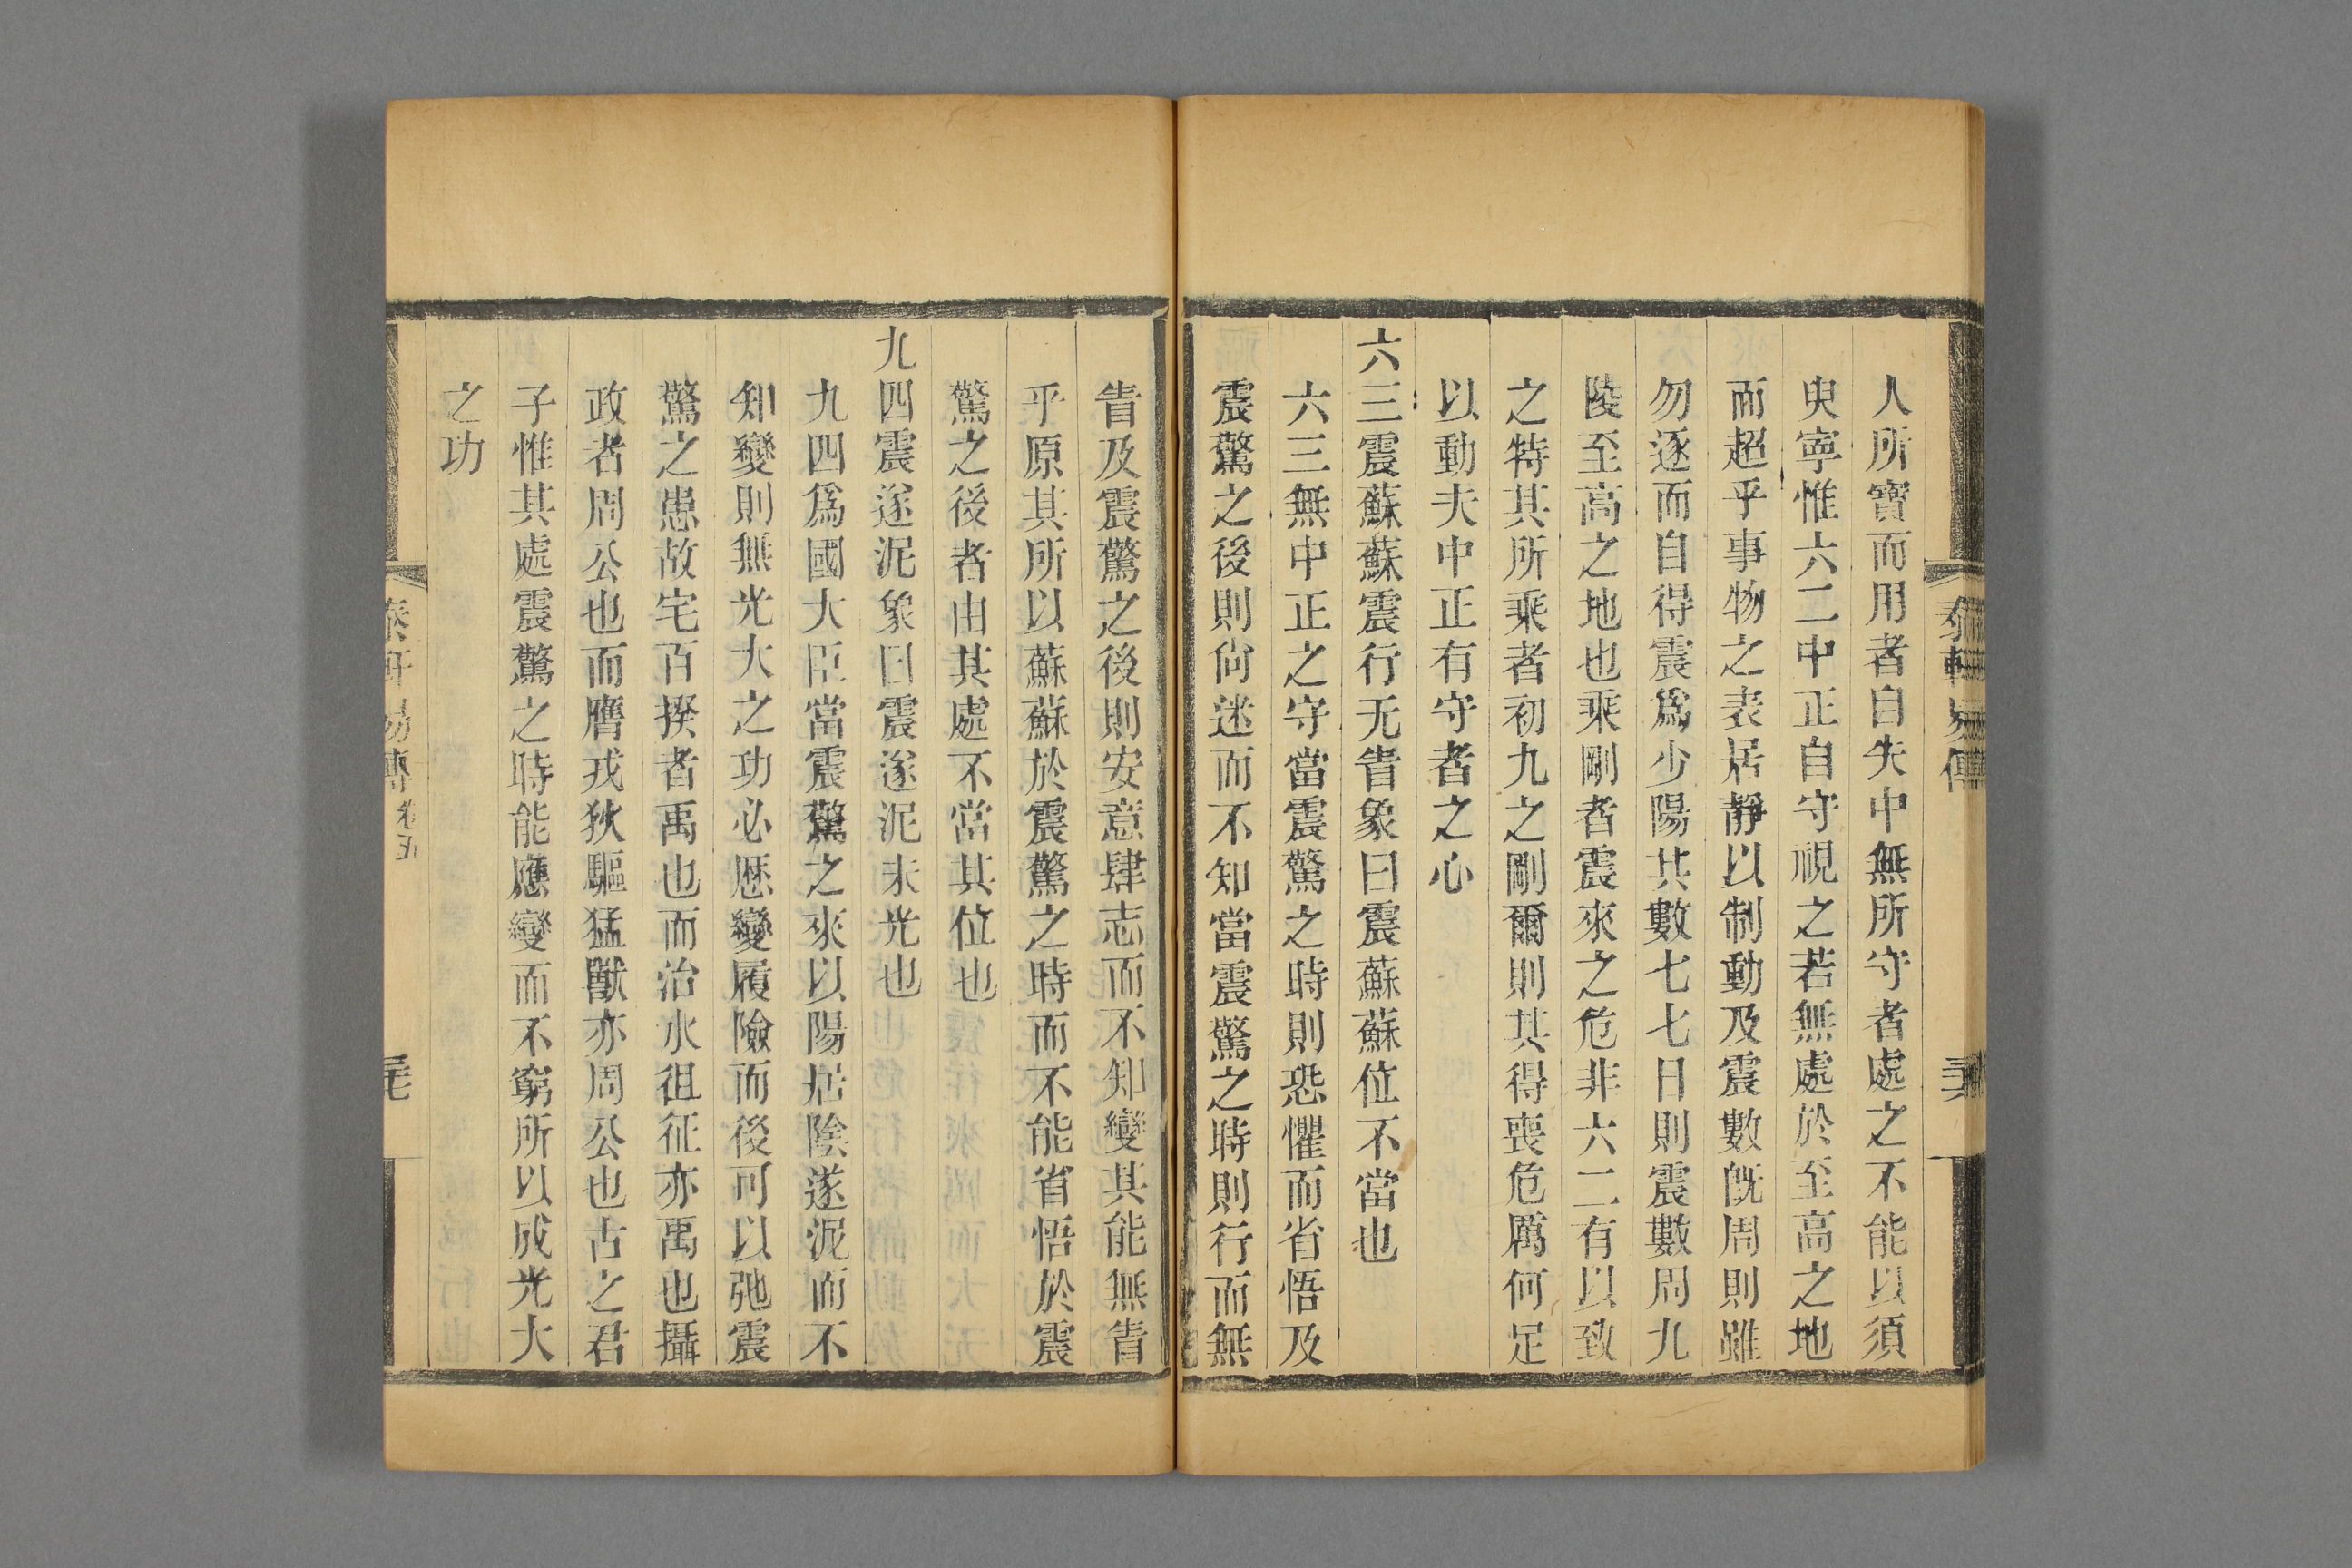 人所寶而用者自失中無所守者處之不能以須
臾寧惟六二中正自守視之若無處於至高之地
而超乎事物之表居靜以制動及震數旣周則雖
勿逐而自得震爲少陽其數七七日則震數周九
陵至高之地也乘剛者震來之危非六二有以致
之特其所乘者初九之剛爾則其得喪危厲何足
以動夫中正有守者之心
六三震蘇蘇震行无眚象曰震蘇蘇位不當也
六三無中正之守當震驚之時則恐懼而省悟及
震驚之後則尙迷而不知當震驚之時則行而無
眚及震驚之後則安意肆志而不知變其能無眚
乎原其所以蘇蘇於震驚之時而不能省悟於震
驚之後者由其處不當其位也
九四震遂泥象曰震遂泥未光也
九四爲國大臣當震驚之來以陽居陰遂泥而不
知變則無光大之功必歷變履險而後可以弛震
驚之患故宅百揆者禹也而治水徂征亦禹也攝
政者周公也而膺戎狄驅猛獸亦周公也古之君
子惟其處震驚之時能應變而不窮所以成光大
之功
泰軒易傳 卷五